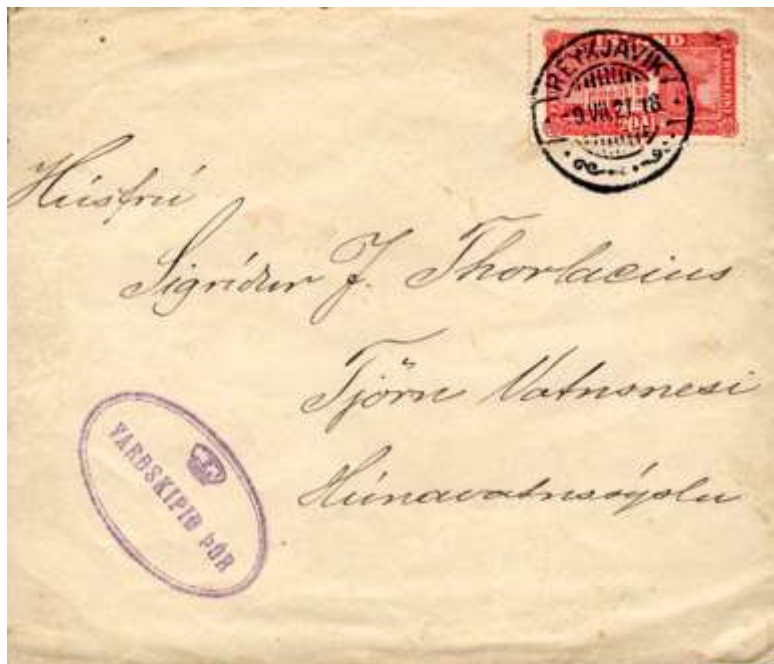 ÍSLAND
REYKJAVÍK
9.VII.27.18
20 AUR
Húsfrú
Sigríður J. Thorlacius
Tjörn Vatnsnesi
Húnavatnssýslu
VARÐSKIPIÐ ÞÓR